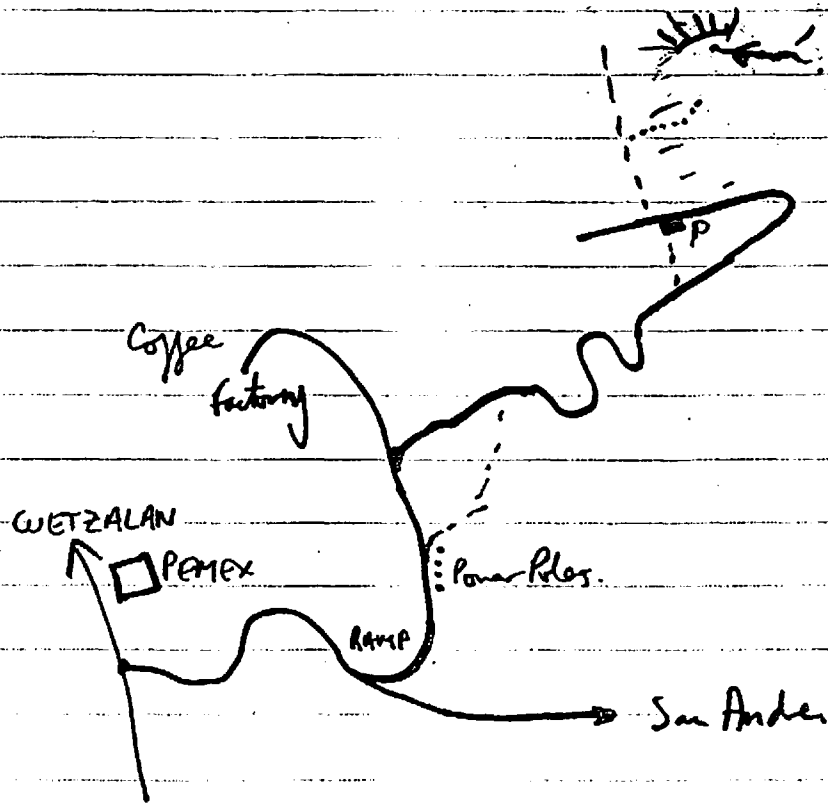 P
Coffee
Factory
CUETZALAN
PEMEX
Power Poles.
RAMP
San Andres